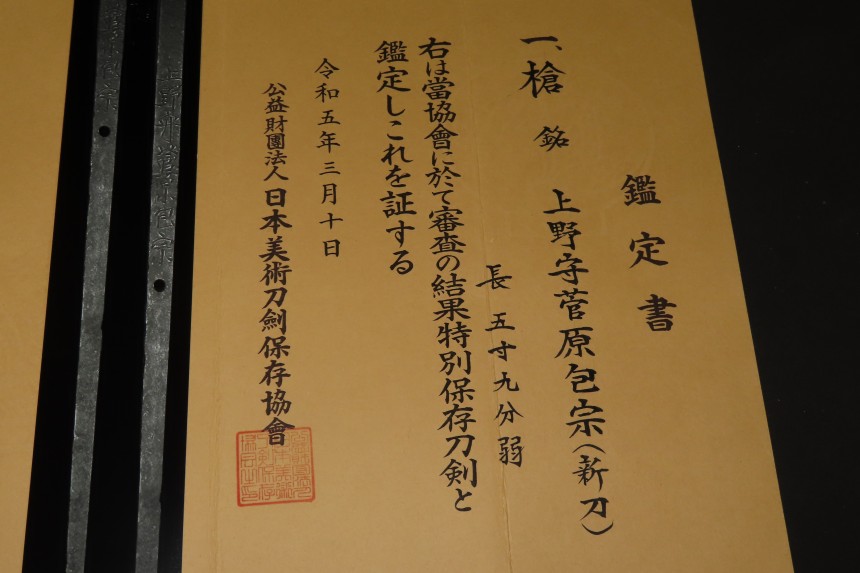 鑑定書
一、槍 銘 上野守菅原包宗(新刀)
長 五寸九分弱
右は當協會に於て審査の結果特別保存刀剣と
鑑定しこれを証する
令和五年三月十日
公益財團法人 日本美術刀劍保存協會